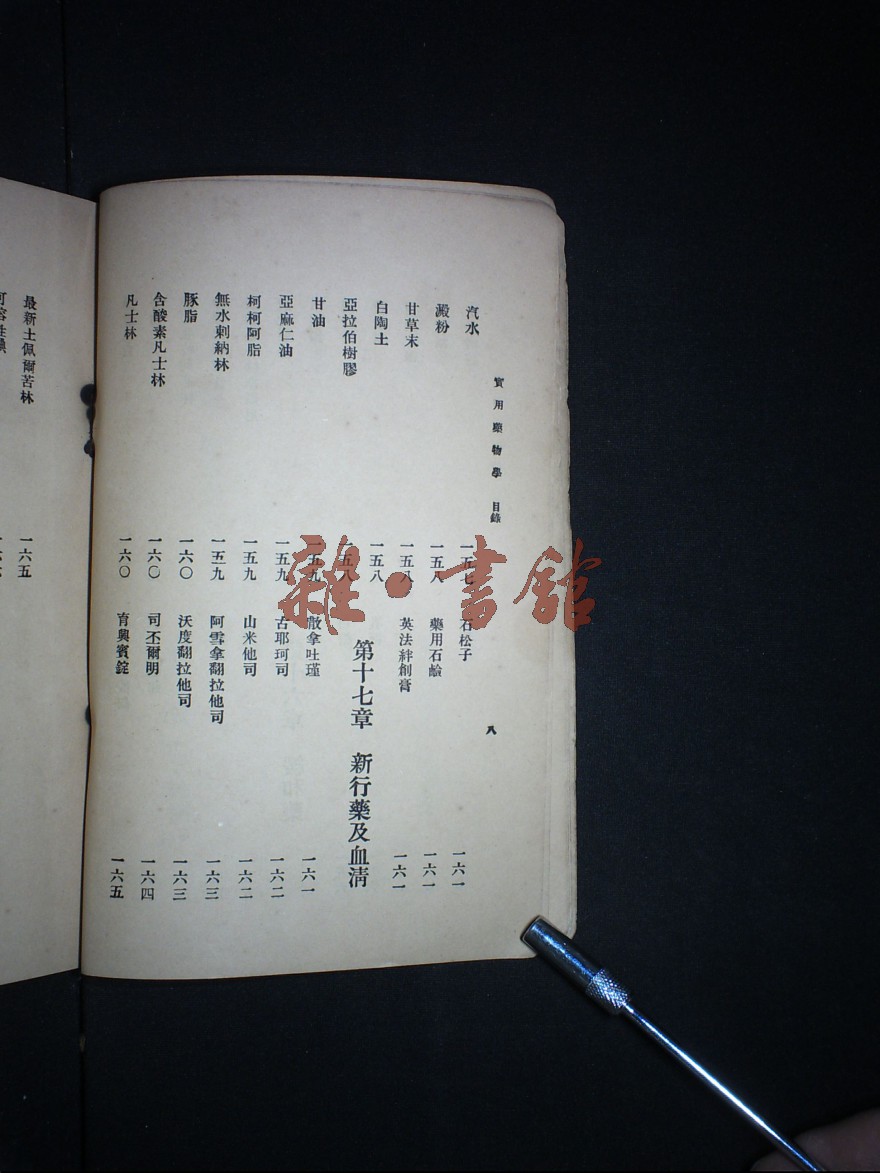 實用藥物學 目錄 八
汽水 一五七
澱粉 一五八
甘草末 一五八
白陶土 一五八
亞拉伯樹膠 一五八
甘油 一五九
亞麻仁油 一五九
柯柯阿脂 一五九
無水剌納林 一五九
豚脂 一六〇
含酸素凡士林 一六〇
凡士林 一六〇
石松子 一六一
藥用石鹼 一六一
英法絆創膏 一六一
第十七章 新行藥及血清
散拿吐瑾 一六一
古耶珂司 一六二
山米他司 一六二
阿雪拿翻拉他司 一六三
沃度翻拉他司 一六三
司丕爾明 一六四
育興賓錠 一六五
最新士佩爾苦林 一六五
雜·書館